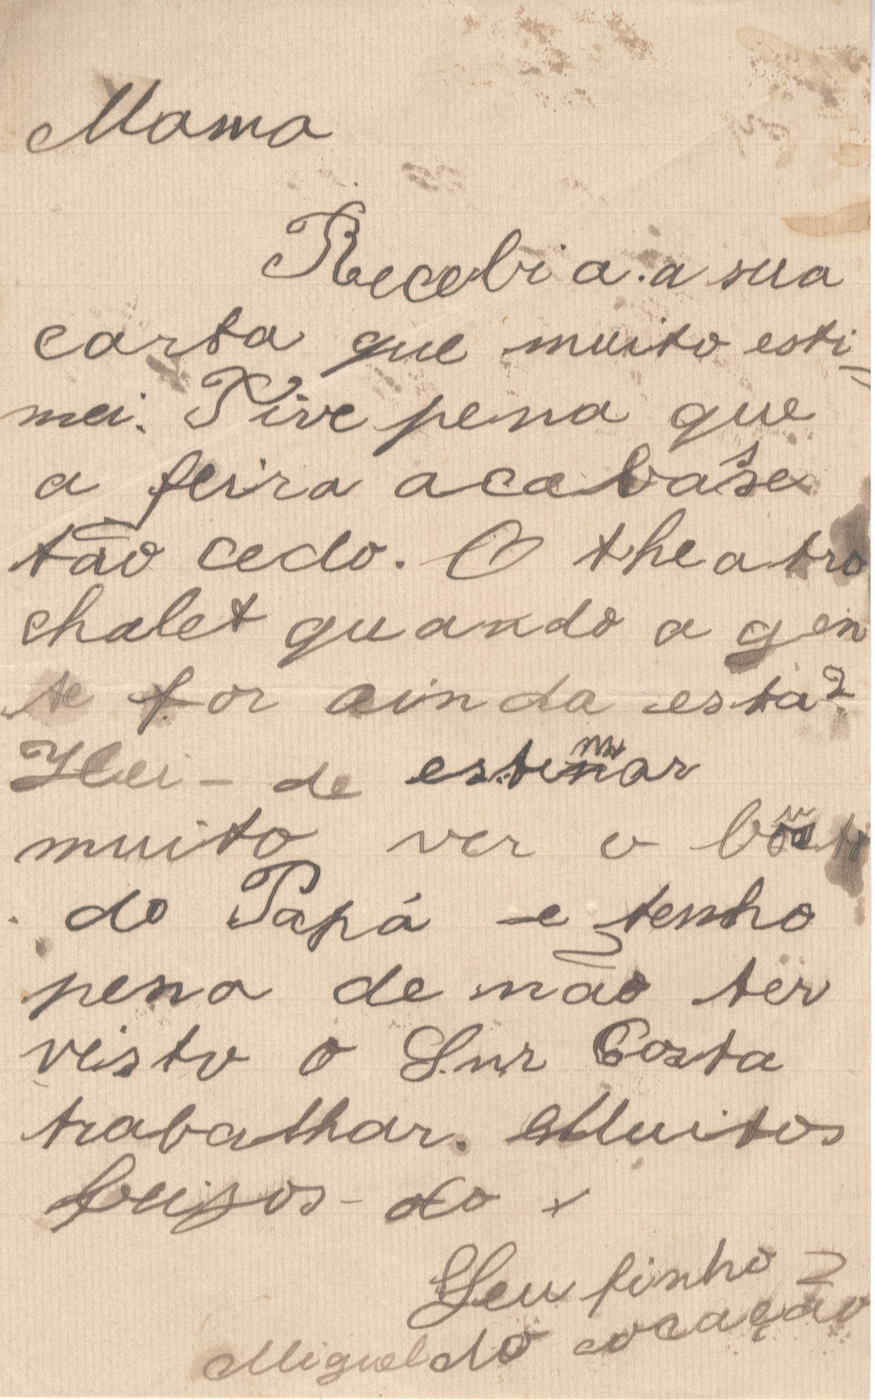 Mama
Recebi a a sua
carta que muito esti-
mei. Tive pena que
a feira acabásse
tão cedo. O theatro
chalet quando a gen
te for ainda está?
Hei-de estimar
muito ver o busto
do Papá e tenho
pena de não ter
visto o Snr Costa
trabalhar. Muitos
beijos do x
Seu finho
Miguel do coração